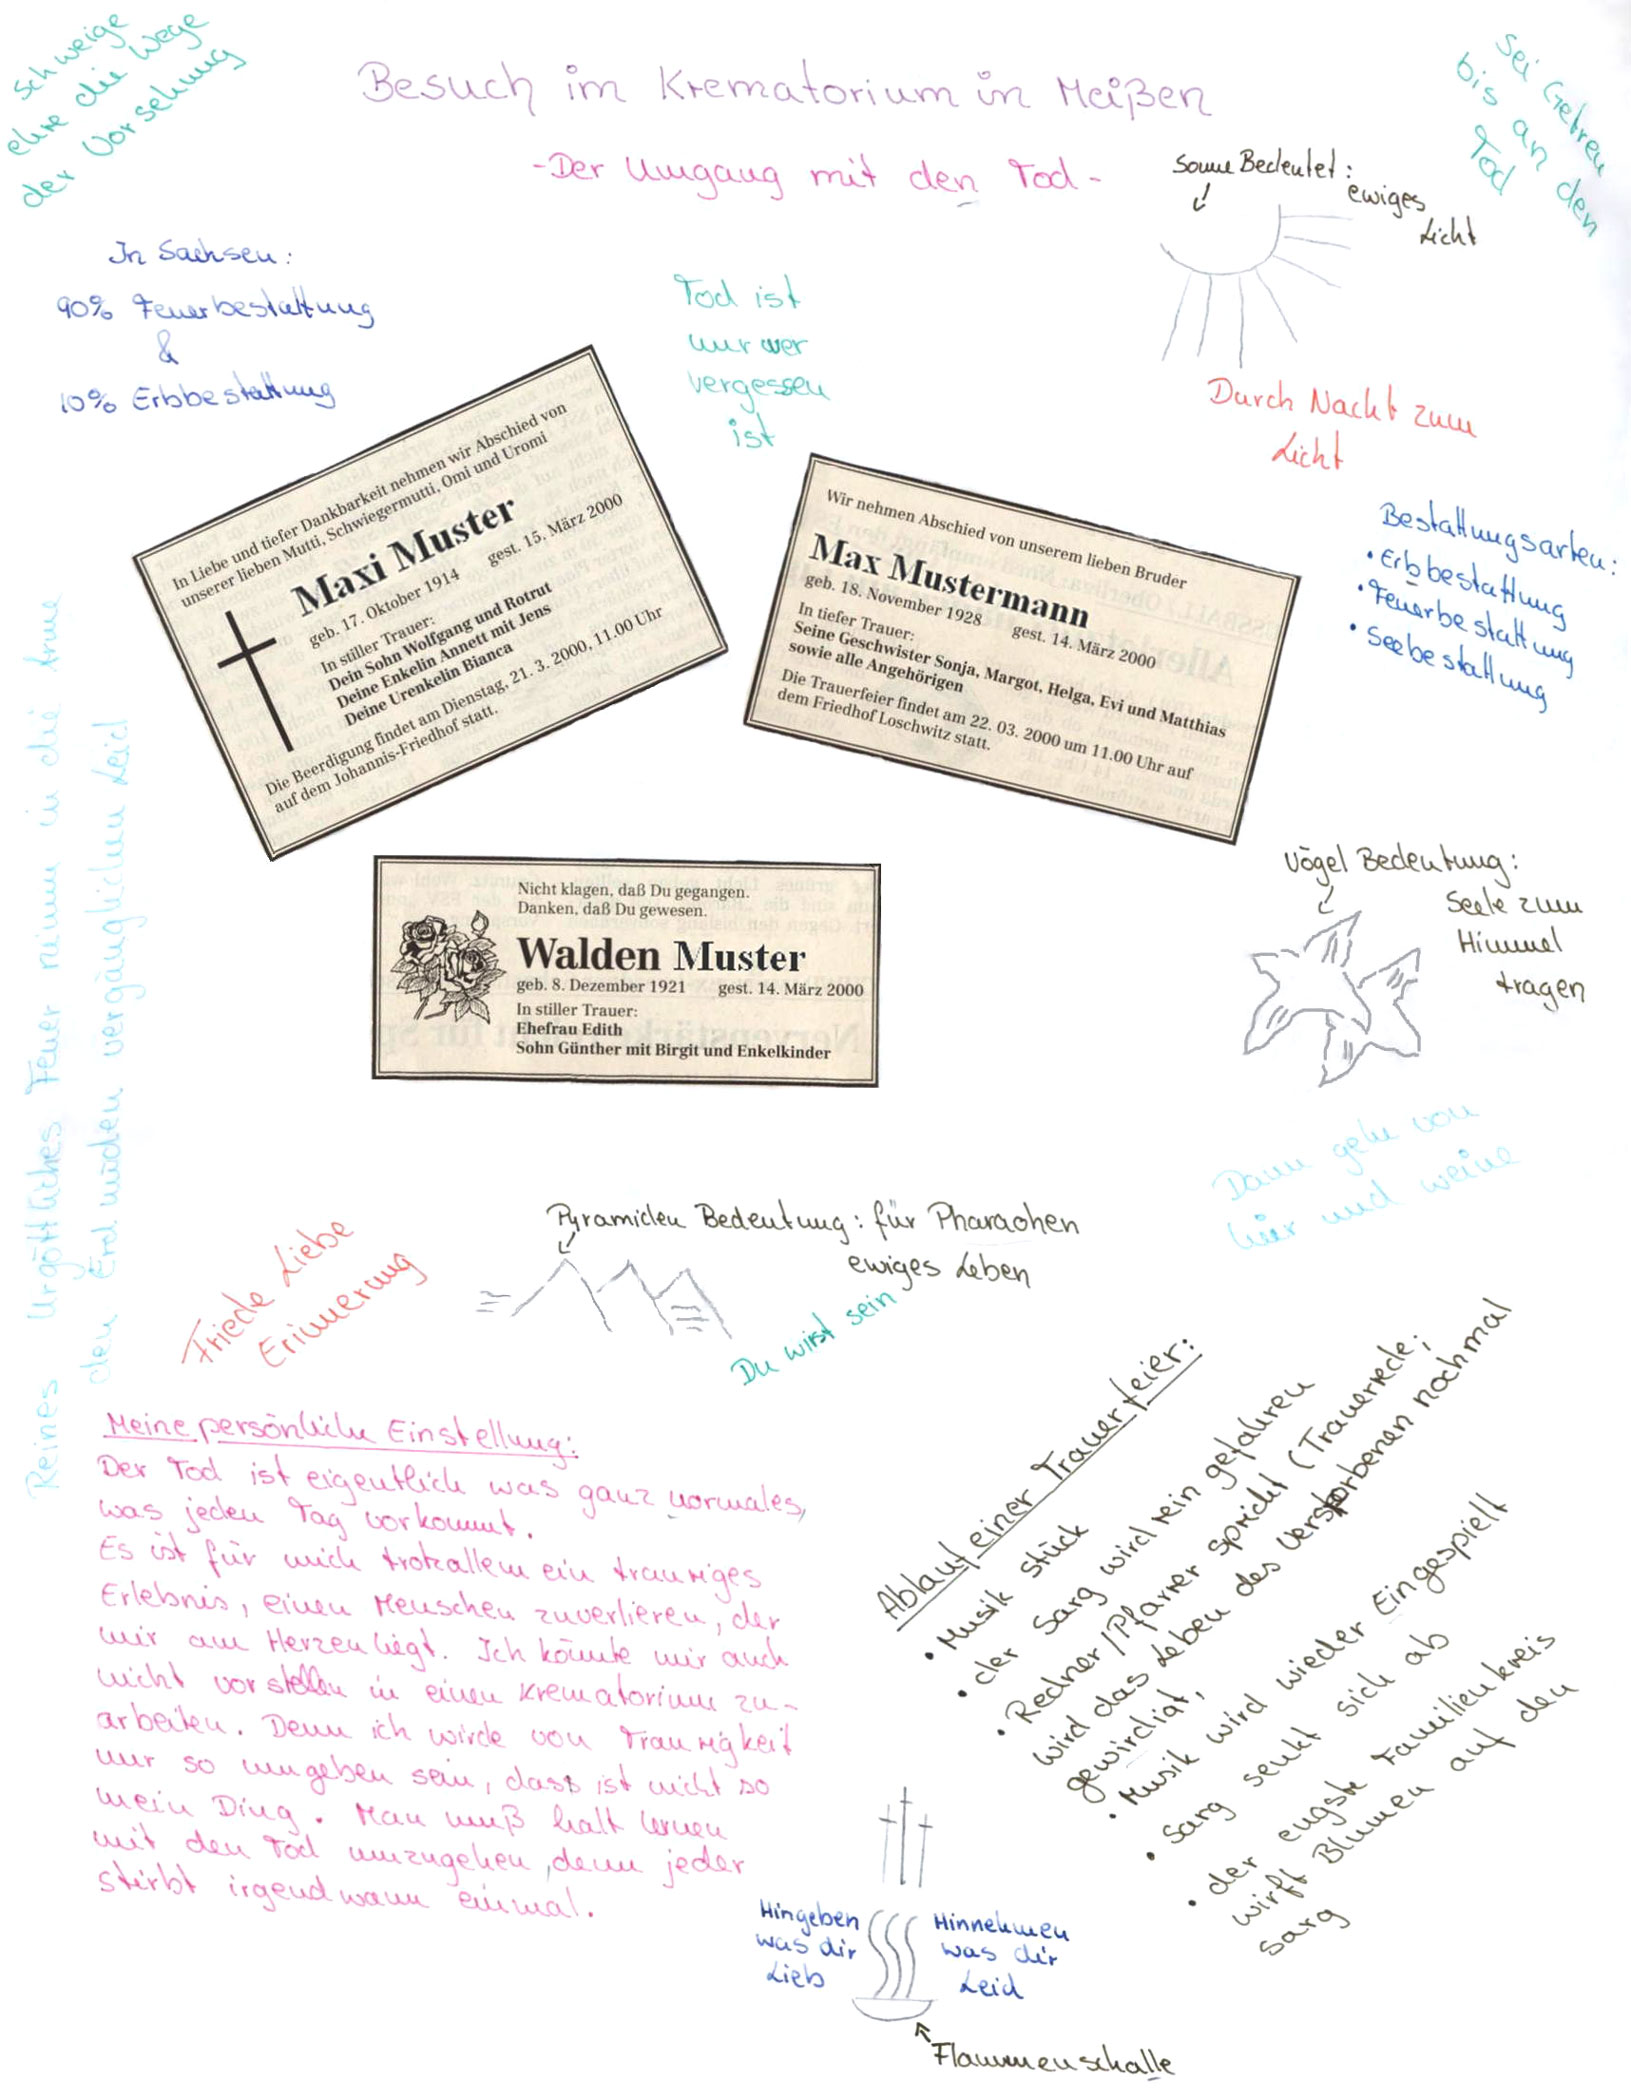 Schweige
ehre die Wege
der Vorsehung
Besuch im Krematorium in Meißen
-Der Umgang mit den Tod-
Sei Getreu
bis an den
Tod
Sonne Bedeutet:
ewiges
Licht
In Sachsen:
90% Feuerbestattung
&
10% Erbbestattung
Tod ist
nur wer
vergessen
ist
Durch Nacht zum
Licht
Bestattungsarten:
• Erbbestattung
• Feuerbestattung
• Seebestattung
In Liebe und tiefer Dankbarkeit nehmen wir Abschied von
unserer lieben Mutti, Schwiegermutti, Omi und Uromi
Maxi Muster
geb. 17. Oktober 1914 gest. 15. März 2000
In stiller Trauer:
Dein Sohn Wolfgang und Rotrut
Deine Enkelin Annett mit Jens
Deine Urenkelin Bianca
Die Beerdigung findet am Dienstag, 21. 3. 2000, 11.00 Uhr
auf dem Johannis-Friedhof statt.
Wir nehmen Abschied von unserem lieben Bruder
Max Mustermann
geb. 18. November 1928 gest. 14. März 2000
In tiefer Trauer:
Seine Geschwister Sonja, Margot, Helga, Evi und Matthias
sowie alle Angehörigen
Die Trauerfeier findet am 22. 03. 2000 um 11.00 Uhr auf
dem Friedhof Loschwitz statt.
Nicht klagen, daß Du gegangen.
Danken, daß Du gewesen.
Walden Muster
geb. 8. Dezember 1921 gest. 14. März 2000
In stiller Trauer:
Ehefrau Edith
Sohn Günther mit Birgit und Enkelkinder
Vögel Bedeutung:
Seele zum
Himmel
tragen
Reines Urgöttliches Feuer nimm in die Arme
den Erdmüden vergänglichen Leid
Dann gehe von
hier und weine
Pyramiden Bedeutung: für Pharaohen
ewiges Leben
Friede Liebe
Erinnerung
Du wirst sein
Meine persönliche Einstellung:
Der Tod ist eigentlich was ganz normales,
was jeden Tag vorkommt.
Es ist für mich trotzallem ein trauriges
Erlebnis, einen Menschen zuverlieren, der
mir am Herzen liegt. Ich könnte mir auch
nicht vorstellen in einen Krematorium zu-
arbeiten. Denn ich würde von Traurigkeit
nur so umgeben sein, dass ist nicht so
mein Ding. Man muß halt lernen
mit den Tod umzugehen, denn jeder
stirbt irgendwann einmal.
Ablauf einer Trauerfeier:
• Musik stück
• der Sarg wird rein gefahren
• Redner/Pfarrer spricht (Trauerrede;
wird das Leben des verstorbenen nochmal
gewirdigt,
• Musik wird wieder Eingespielt
• Sarg senkt sich ab
• der engste Familienkreis
wirft Blumen auf den
Sarg
Hingeben
was dir
Lieb
Hinnehmen
was dir
Leid
Flammenschalle